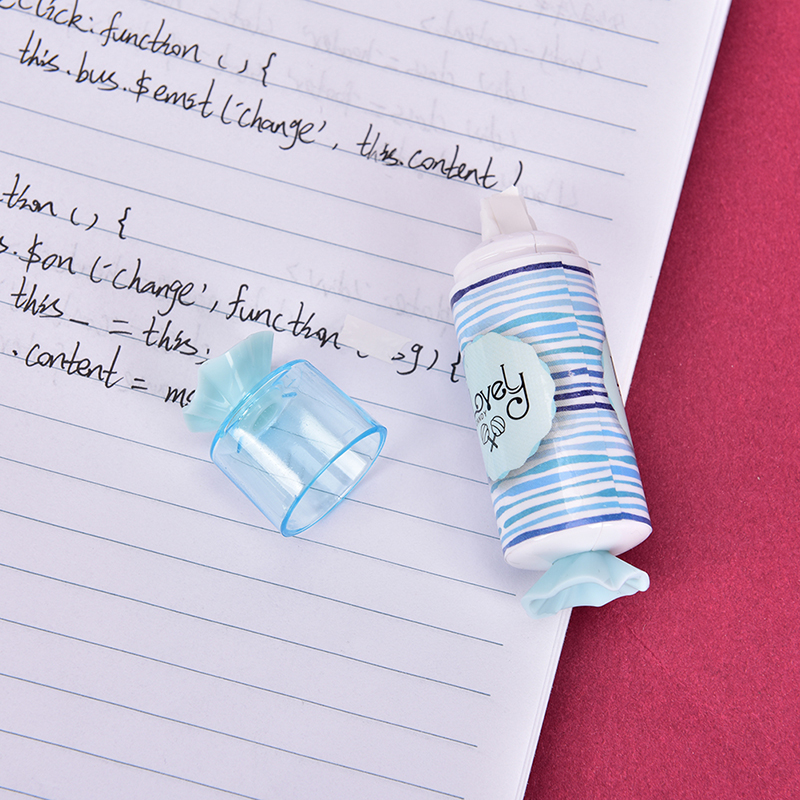 click: function () {
this.bus.$emst ('change', this.content )
tion () {
s.$on ('change', function ( sg) {
this_ = this;
.content = ms
Lovely